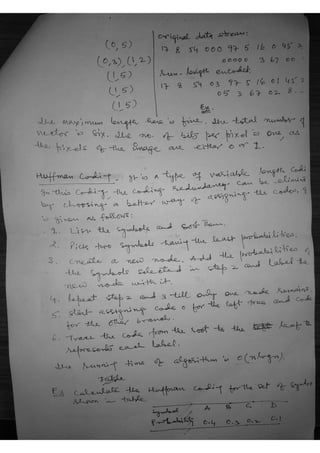 (0, 5)
(0,3), (1,2)
(1,5)
(1,5)
(1,5)
original data stream:
17 8 54 000 97 5 16 0 45 2
00000 3 67 00
Run-length encoded
17 8 54 03 97 5 16 01 45 2
05 3 67 02 8 ..
The maximum length here is five. The total number of
vector is six. The no. of bits per pixel is one, as
the pixels of the image are either 0 or 1.
Huffman Coding. It is a type of variable length Codi
In this Coding the Coding Redundancy can be elimina
by choosing a better way of assigning the codes, g
is given as follows:
1. List the symbols and sort them.
2. Pick two symbols having the least probabilities.
3. Create a new node. Add the probabilities of
the symbols selected in step 2 and label the
new node with it.
4. Repeat step 2 and 3 till only one node remains.
5. Start assigning code 0 for the left tree and code
for the other branch.
6. Trace the code from the root to the leaf th
represents each label.
The running time of algorithm is O(nlogn).
Eg Calculate the Huffman Coding for the set of symbo
shown in table
Symbol A B C D
Probability 0.4 0.3 0.2 0.1